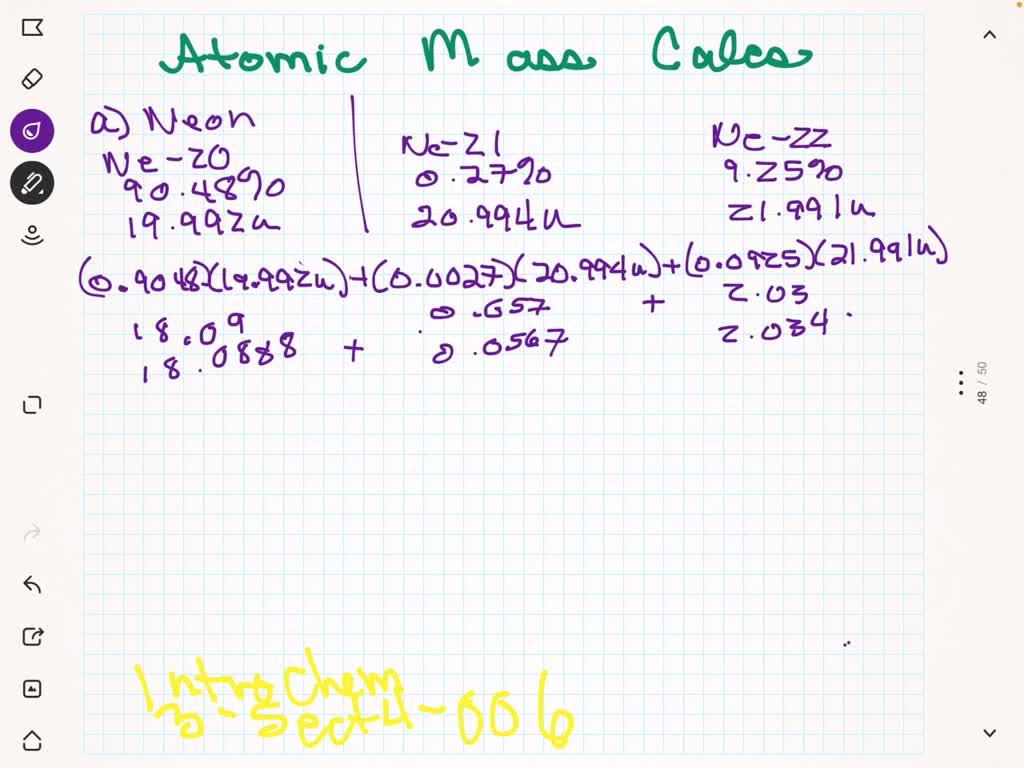 Atomic Mass Calcs
a) Neon
Ne-20
90.48%
19.992u
Ne-21
0.27%
20.994u
Ne-22
9.25%
21.991u
(0.9048)(19.992u)+(0.0027)(20.994u)+(0.0925)(21.991u)
18.09 0.057 + 2.03
18.0888 + 0.0567 2.034
Intro Chem
3-Sect4-006
48 / 50